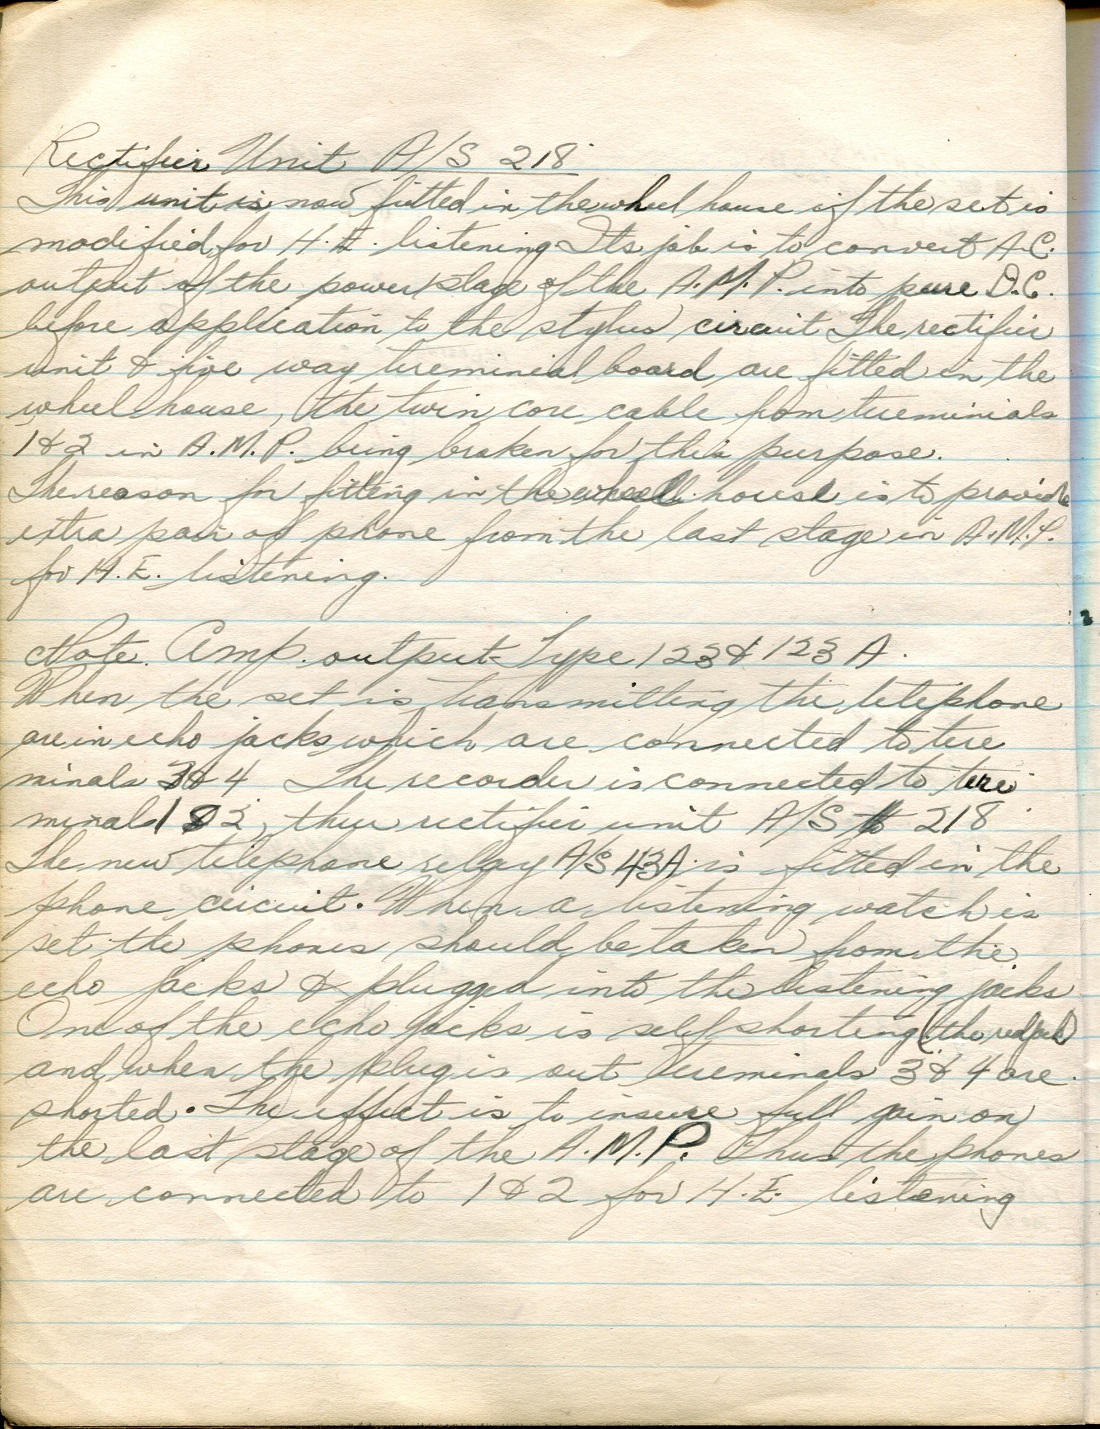 Rectifier Unit A/S 218
This unit is now fitted in the wheel house if the set is
modified for H.E. listening Its job is to convert A.C.
output of the power stage of the A.M.P. into pure D.C.
before application to the stylus circuit The rectifier
unit & five way tereminial board are fitted in the
wheel house, the twin core cable from tereminials
1 & 2 in A.M.P. being broken for this purpose.
The reason for fitting in the wheel house is to provide
extra pair of phone from the last stage in A.M.P.
for H.E. listening.
Note. Amp. output Type 123 & 123 A.
When the set is transmitting the telephone
are in echo jacks which are connected to tere
minals 3 & 4 The recorder is connected to tere
minals 1 & 2, thru rectifier unit A/S 218
The new telephone relay A/S 43A is fitted in the
phone circuit. When a listening watch is
set the phones should be taken from the
echo jacks & plugged into the listening jacks
One of the echo jacks is self shorting (the red jack)
and when the plug is out tereminals 3 & 4 are
shorted. The effect is to insure full gain on
the last stage of the A.M.P. Thus the phones
are connected to 1 & 2 for H.E. listening